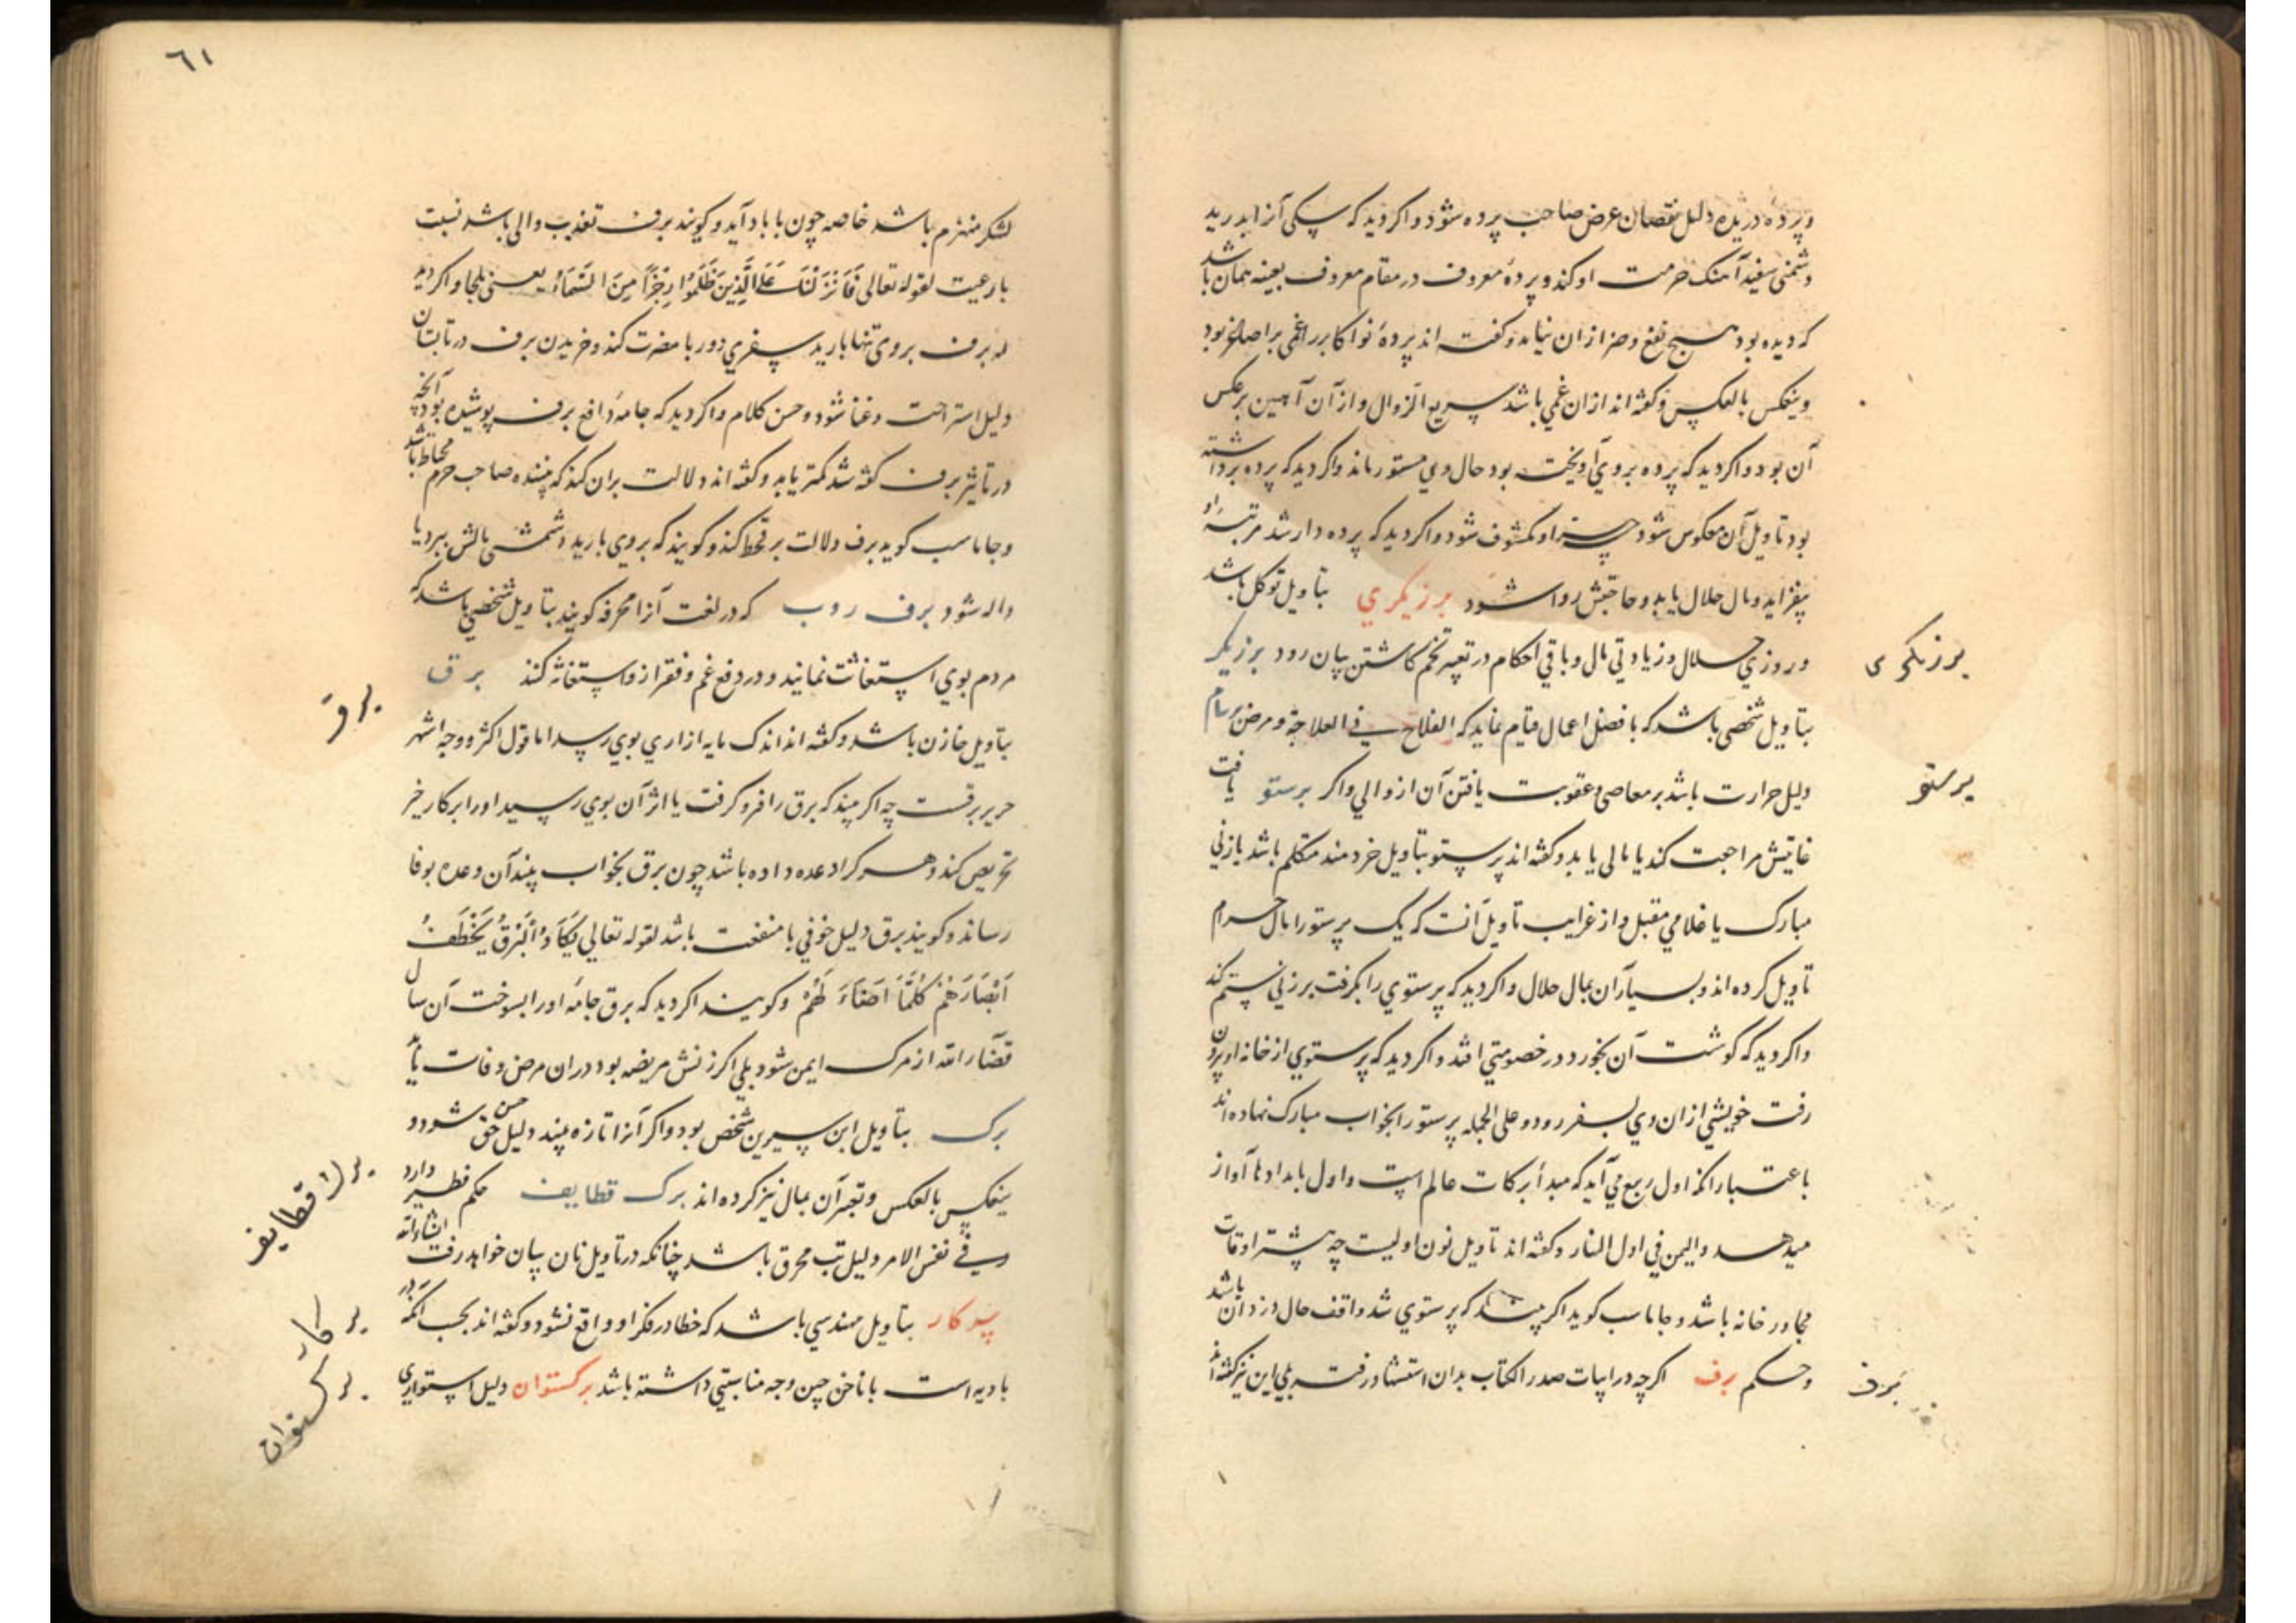 وپرده دریده دلیل نقصان عرض صاحب پرده شود واکر دید که سکی آنرا بدرید
دشمنی سفیه آهنک حرمت او کند وپردهٔ معروف در مقام معروف بعینه همان باشد
که دیده بود هیچ نفع وضر ازان نیاید وکفته اند پردهٔ نو اکابر را غمی بر اصل بود
وینعکس بالعکس وکفته اند ازان غمی باشد سریع الزوال وازآن آهنین برعکس
آن بود واکر دید که پرده بروی آویخته بود حال وی مستور ماند واکر دید که پرده برداشته
بود تاویل آن معکوس شود چه ستر او مکشوف شود واکر دید که پرده دار شد مرتبهٔ او
بیفزاید ومال حلال یابد وحاجتش روا شود برزیکری بتاویل توکل باشد
برزیکری
وروزی حلال وزیادتی مال وباقی احکام در تعبیر تخم کاشتن بیان رود برزیکر
بتاویل شخصی باشد که بافضل اعمال قیام نماید که الفلاح فی الفلاحة ومرض برسام
دلیل حرارت باشد بر معاصی وعقوبت یافتن آن از والی واکر پرستو یافت
پرستو
غایبش مراجعت کند یا مالی یابد وکفته اند پرستو بتاویل خردمند متکلم باشد یا زنی
مبارک یا غلامی مقبل واز غرایب تاویل آنست که یک پرستو را بمال حرام
تاویل کرده اند وبسیار آن بمال حلال واکر دید که پرستوی را بکرفت بر زنی ستم کند
واکر دید که کوشت آن بخورد در خصومتی افتد واکر دید که پرستوی از خانه او بیرون
رفت خویشی ازان وی بسفر رود وعلی الجمله پرستو را بخواب مبارک نهاده اند
باعتبار انکه اول ربیع می آید که مبدأ برکات عالم است واول بامداد آواز
میدهد والیمن فی اول النهار وکفته اند تاویل نون اولیست چه بیشتر اوقات
مجاور خانه باشد وجاماسب کوید اکر بیند که پرستوی شد واقف حال دزدان باشد
وحکم برف اکرچه در ابیات صدر الکتاب بدان استشهاد رفت بلی این نیز کفته اند
برف
٦١
لشکر منهزم باشد خاصه چون با باد آید وکویند برف تعذیب والی باشد نسبت
با رعیت لقوله تعالی فَاَنْزَلْنَا عَلَی الَّذِینَ ظَلَمُوا رِجْزًا مِنَ السَّمَاءِ یعنی ثلجا واکر دید
که برف بروی تنها بارید سفری دور با مضرت کند وخریدن برف در تابستان
دلیل استراحت وغنا شود وحسن کلام واکر دید که جامهٔ دافع برف پوشیده بود آنچه
در تاثیر برف کفته شد کمتر یابد وکفته اند دلالت بران کند که بیننده صاحب حزم محتاط باشد
وجاماسب کوید برف دلالت بر قحط کند وکویند که بروی بارید دشمنش مالش ببرد یا
واله شود برف روب که در لغت آنرا مجرفه کویند بتاویل شخصی باشد که
مردم بوی استغاثت نمایند ودر دفع غم وفقر ازو استغاثه کنند برق
برق
بتاویل خازن باشد وکفته اند اندک مایه ازاری بوی رسد اما قول اکثر ووجه اشهر
حریر برقست چه اکر بیند که برق را فرو کرفت یا اثر آن بوی رسید او را بر کار خیر
تحریص کند وهر کرا وعده داده باشد چون برق بخواب بیند آن وعده بوفا
رساند وکویند برق دلیل خوفی با منفعت باشد لقوله تعالی یَکَادُ الْبَرْقُ یَخْطَفُ
اَبْصَارَهُمْ کُلَّمَا اَضَاءَ لَهُمْ وکویند اکر دید که برق جامهٔ او را بسوخت آن سال
قضاء الله از مرک ایمن شود بلی اکر زنش مریضه بود دران مرض وفات یابد
برک بتاویل ابن سیرین شخص بود واکر آنرا تازه بیند دلیل حسن خلق شود و
ینعکس بالعکس وتعبیر آن بمال نیز کرده اند برک قطایف حکم فطیر دارد
برک قطایف
وفی نفس الامر دلیل تب محرق باشد چنانکه در تاویل نان بیان خواهد رفت انشاء الله
پرکار بتاویل مهندسی باشد که خطا در فکر او واقع نشود وکفته اند بحسب انکه در
پرکار
بادیه است با ناخن چین وجه مناسبتی داشته باشد برکستوان دلیل استواری
برکستوان